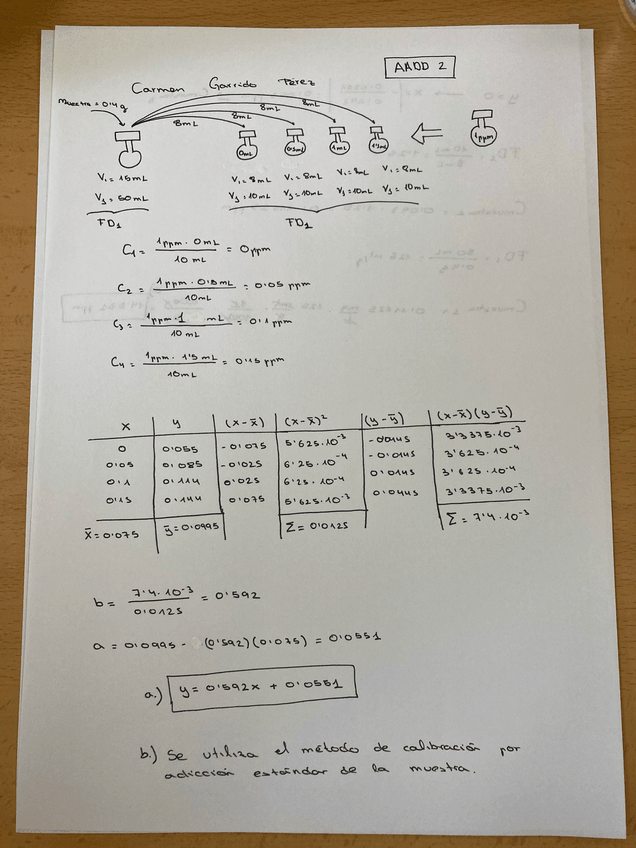 AADD 2
Carmen Garrido Pérez
Muestra = 0'4 g
8mL
8mL
8mL
8mL
0mL 0'5mL 1mL 1'5mL 1ppm
Vi = 15mL Vi = 8mL Vi = 8mL Vi = 8mL Vi = 8mL
Vf = 50mL Vf = 10mL Vf = 10mL Vf = 10mL Vf = 10mL
FD1 FD2
C1 = 1ppm · 0mL / 10 mL = 0ppm
C2 = 1ppm · 0'5mL / 10mL = 0'05 ppm
C3 = 1ppm · 1 mL / 10mL = 0'1 ppm
C4 = 1ppm · 1'5 mL / 10mL = 0'15 ppm
x y (x-x̄) (x-x̄)² (y-ȳ) (x-x̄)(y-ȳ)
0 0'055 -0'075 5'625·10⁻³ -0'0445 3'3375·10⁻³
0'05 0'085 -0'025 6'25·10⁻⁴ -0'0145 3'625·10⁻⁴
0'1 0'114 0'025 6'25·10⁻⁴ 0'0145 3'625·10⁻⁴
0'15 0'144 0'075 5'625·10⁻³ 0'0445 3'3375·10⁻³
x̄ = 0'075 ȳ = 0'0995 Σ = 0'0125 Σ = 7'4·10⁻³
b = 7'4·10⁻³ / 0'0125 = 0'592
a = 0'0995 - (0'592)(0'075) = 0'0551
a.) y = 0'592x + 0'0551
b.) Se utiliza el método de calibración por
adicción estándar de la muestra.